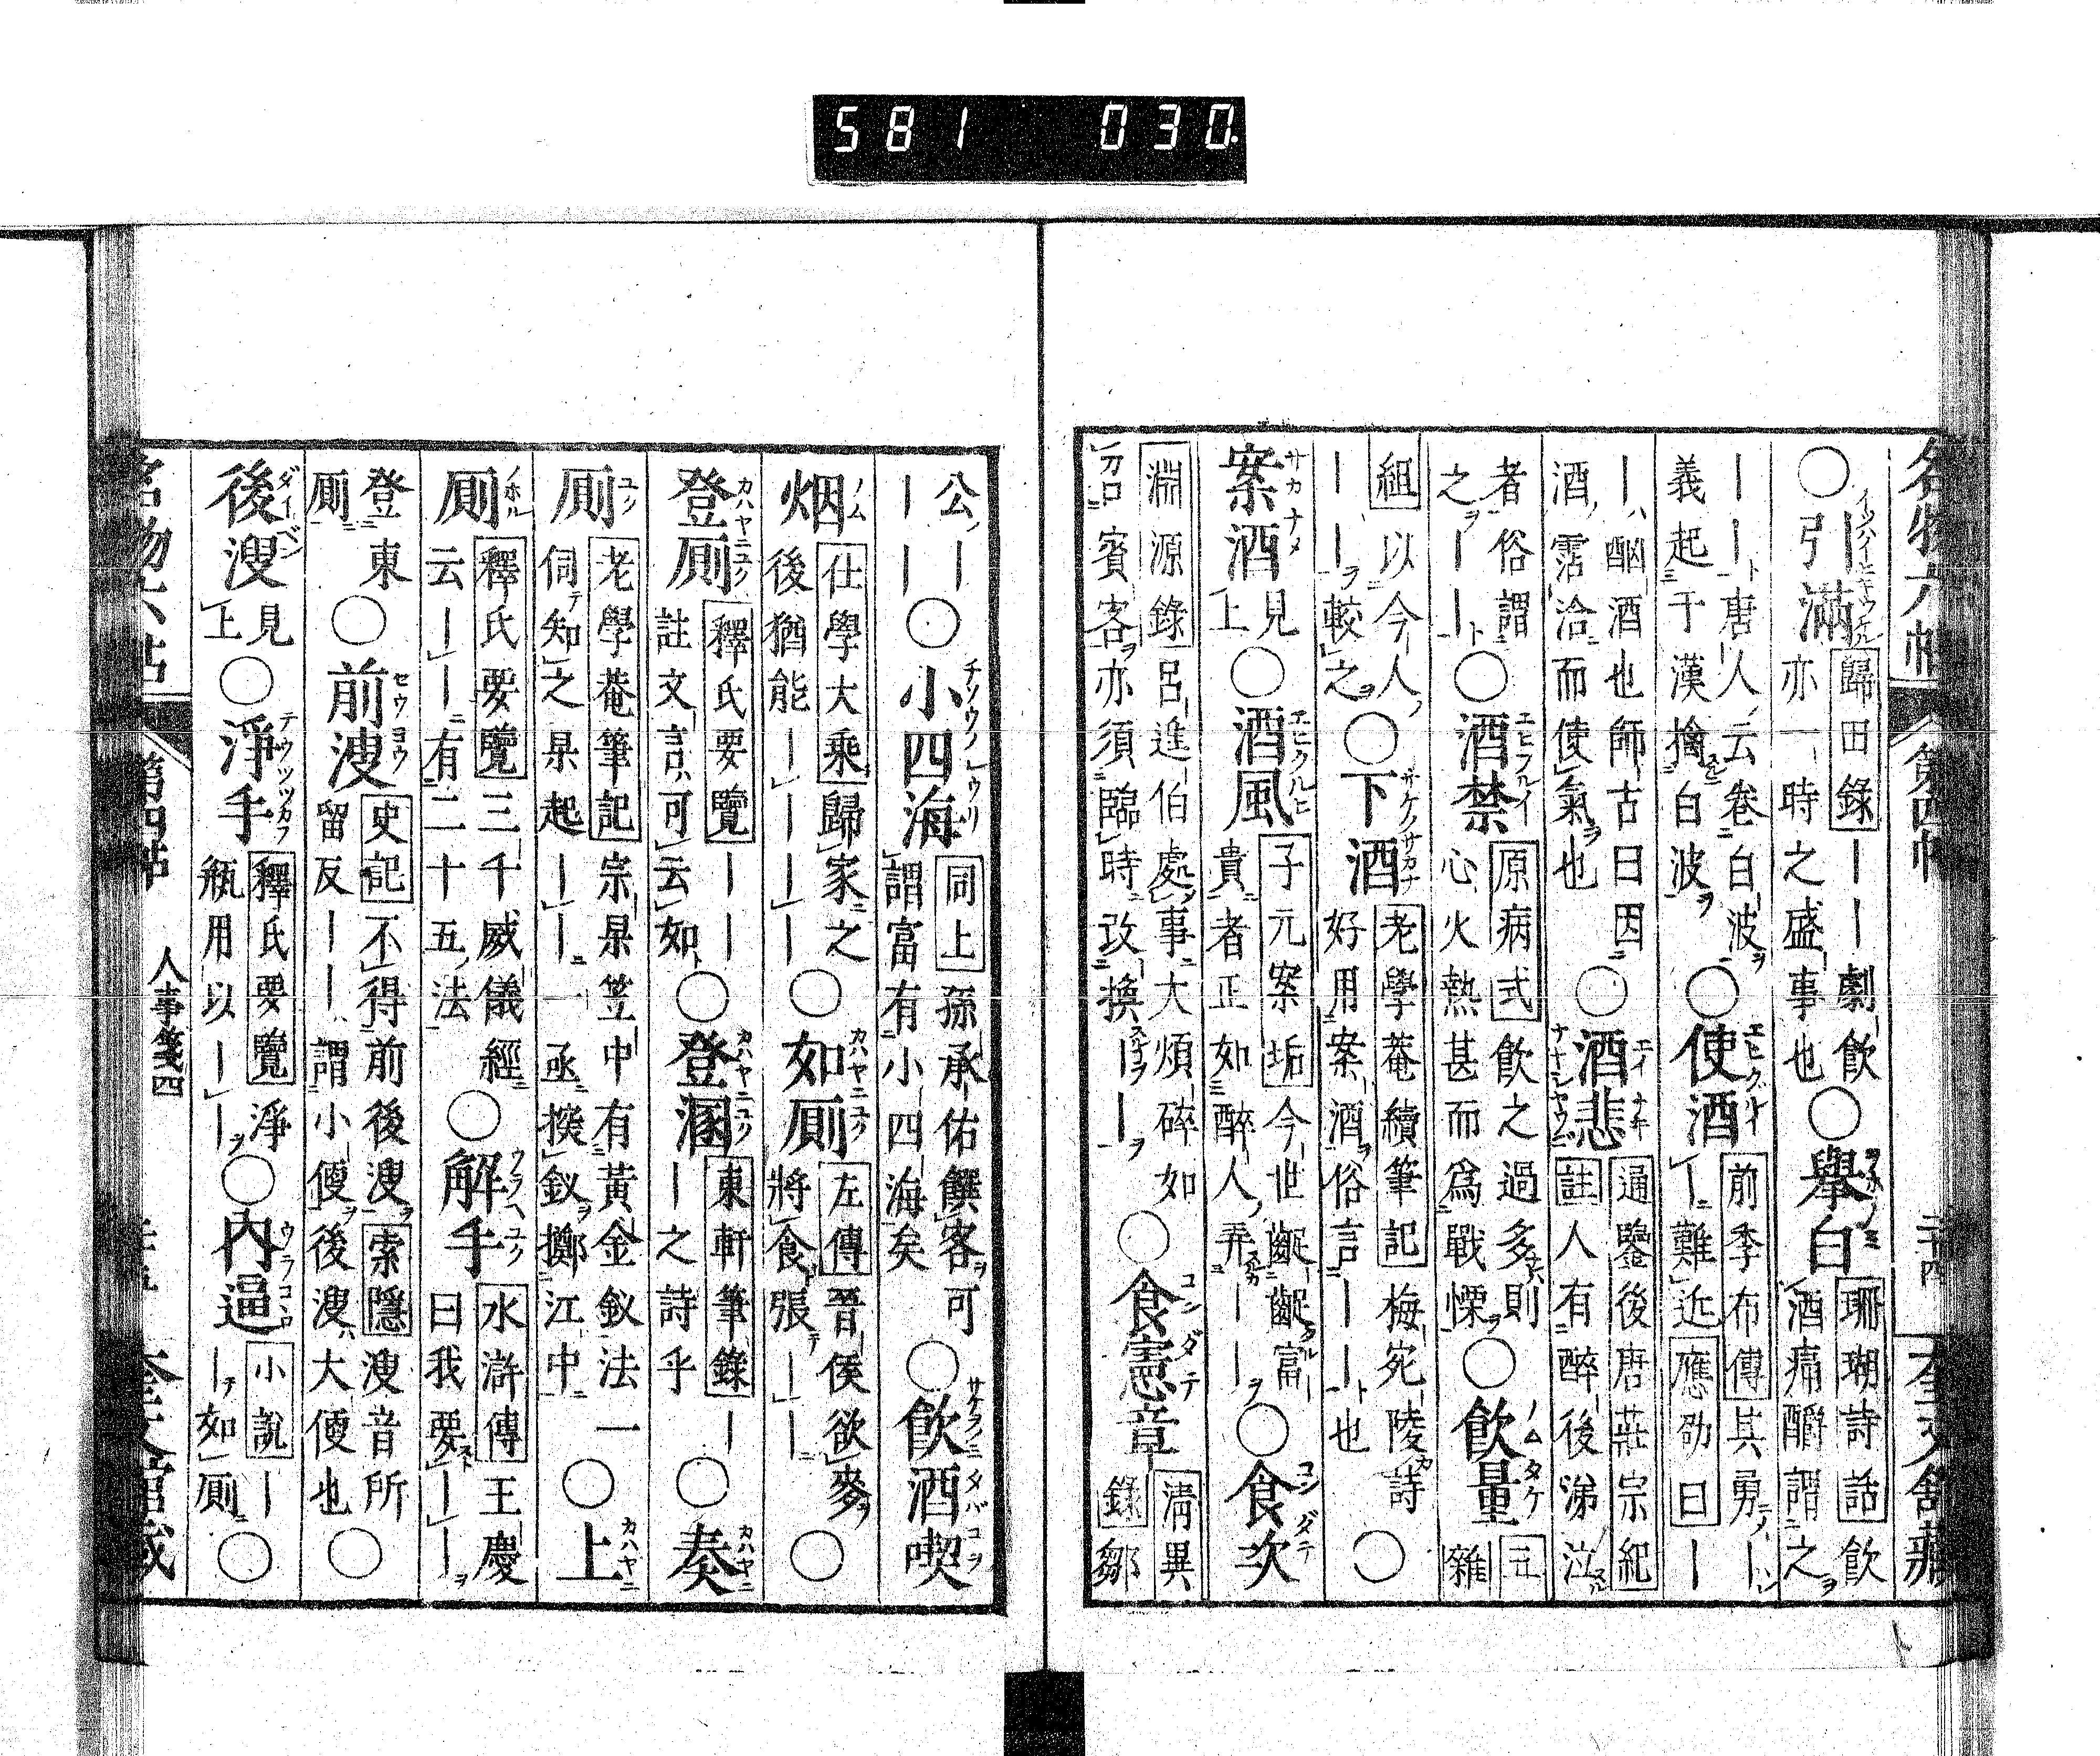 581 030.
名物六帖 第四帖 二十四 奎文館藏
○引滿 歸田錄ーー劇飲亦一時之盛事也○舉白 珊瑚詩話飲酒痛釂謂之
ーー唐人云卷白波義起于漢擒白波○使酒 前季布傳其勇ーー難近應劭曰ー
ー酗酒也師古曰因酒霑洽而使氣也○酒悲 通鑒後唐莊宗紀註人有醉後涕泣
者俗謂之ーー○酒禁 原病式飲之過多則心火熱甚而爲戰慄○飲量 元雜
組以今人ーー較之○下酒 老學菴續筆記梅宛陵詩好用案酒俗言ーー也○
案酒 見上○酒風 子元案垢今世齷齪富貴者正如醉人弄ーー○食次
淵源錄呂進伯處事大煩碎如召賓客亦須臨時改換ーー○食憲章 清異錄鄒
公ーーー○小四海 同上孫承佑饌客可謂富有小四海矣○飲酒喫
烟 仕學大乘歸家之後猶能ーーーー○如厠 左傳晉侯欲麥將食張ーー○
登厠 釋氏要覽ーー註文言可云如○登溷 東軒筆錄ーー之詩乎○奏
厠 老學菴筆記宗杲笠中有黃金釵法一伺知之杲起ーー一亟揆釵擲江中○上
厠 釋氏要覽三千威儀經云ーー有二十五法○解手 水滸傳王慶曰我要ーー
登東厠○前溲 史記不得前後溲索隱溲音所留反ーー謂小便後溲大便也○
後溲 見上○淨手 釋氏要覽淨瓶用以ーー○內逼 小說ーー如厠○
名物六帖 第四帖 人事箋四 奎文館藏